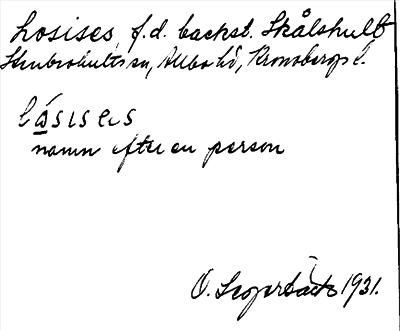 Losises, f.d. backst. Skålshult
Stenbrohults sn, Allbo hd, Kronobergs l.
låsises
namn efter en person
O. 1931.